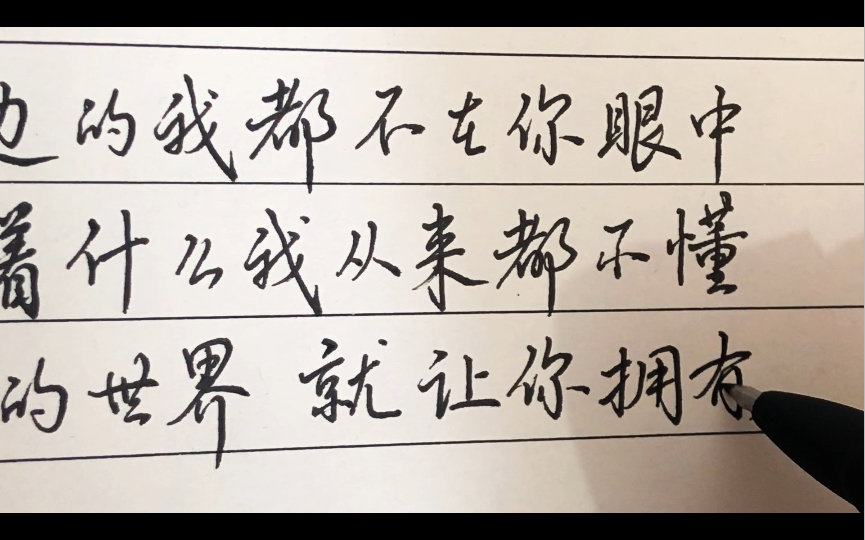 边的我都不在你眼中
着什么我从来都不懂
的世界 就让你拥有